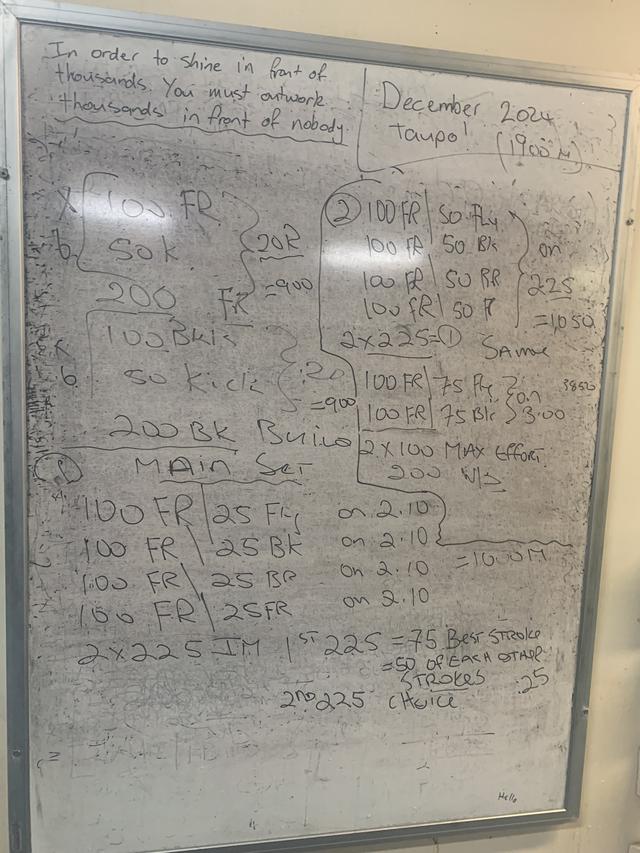 In order to shine in front of
thousands. You must outwork
thousands in front of nobody.
December 2024
Taupo!
(1900 M)
100 FR
50 K
20R
=900
200 FR
100 Bk
50 Kick
:20
=900
200 Bk Build
① MAIN SET
100 FR / 25 Fly on 2.10
100 FR \ 25 BK on 2.10
100 FR / 25 BR on 2.10
100 FR \ 25 FR on 2.10
2 x 225 IM 1ST 225 = 75 Best STROKE
=50 OF EACH OTHER
STROKES :25
2ND 225 CHOICE
② 100 FR / 50 Fly
100 FR / 50 Bk
100 FR \ 50 BR
100 FR \ 50 F
on
225
=1050
2 x 225 = ① SAME
100 FR / 75 Fly
100 FR / 75 Bk
on
3.00
3850
2 x 100 MAX EFFORT
200 W/D
=1000M
Hello